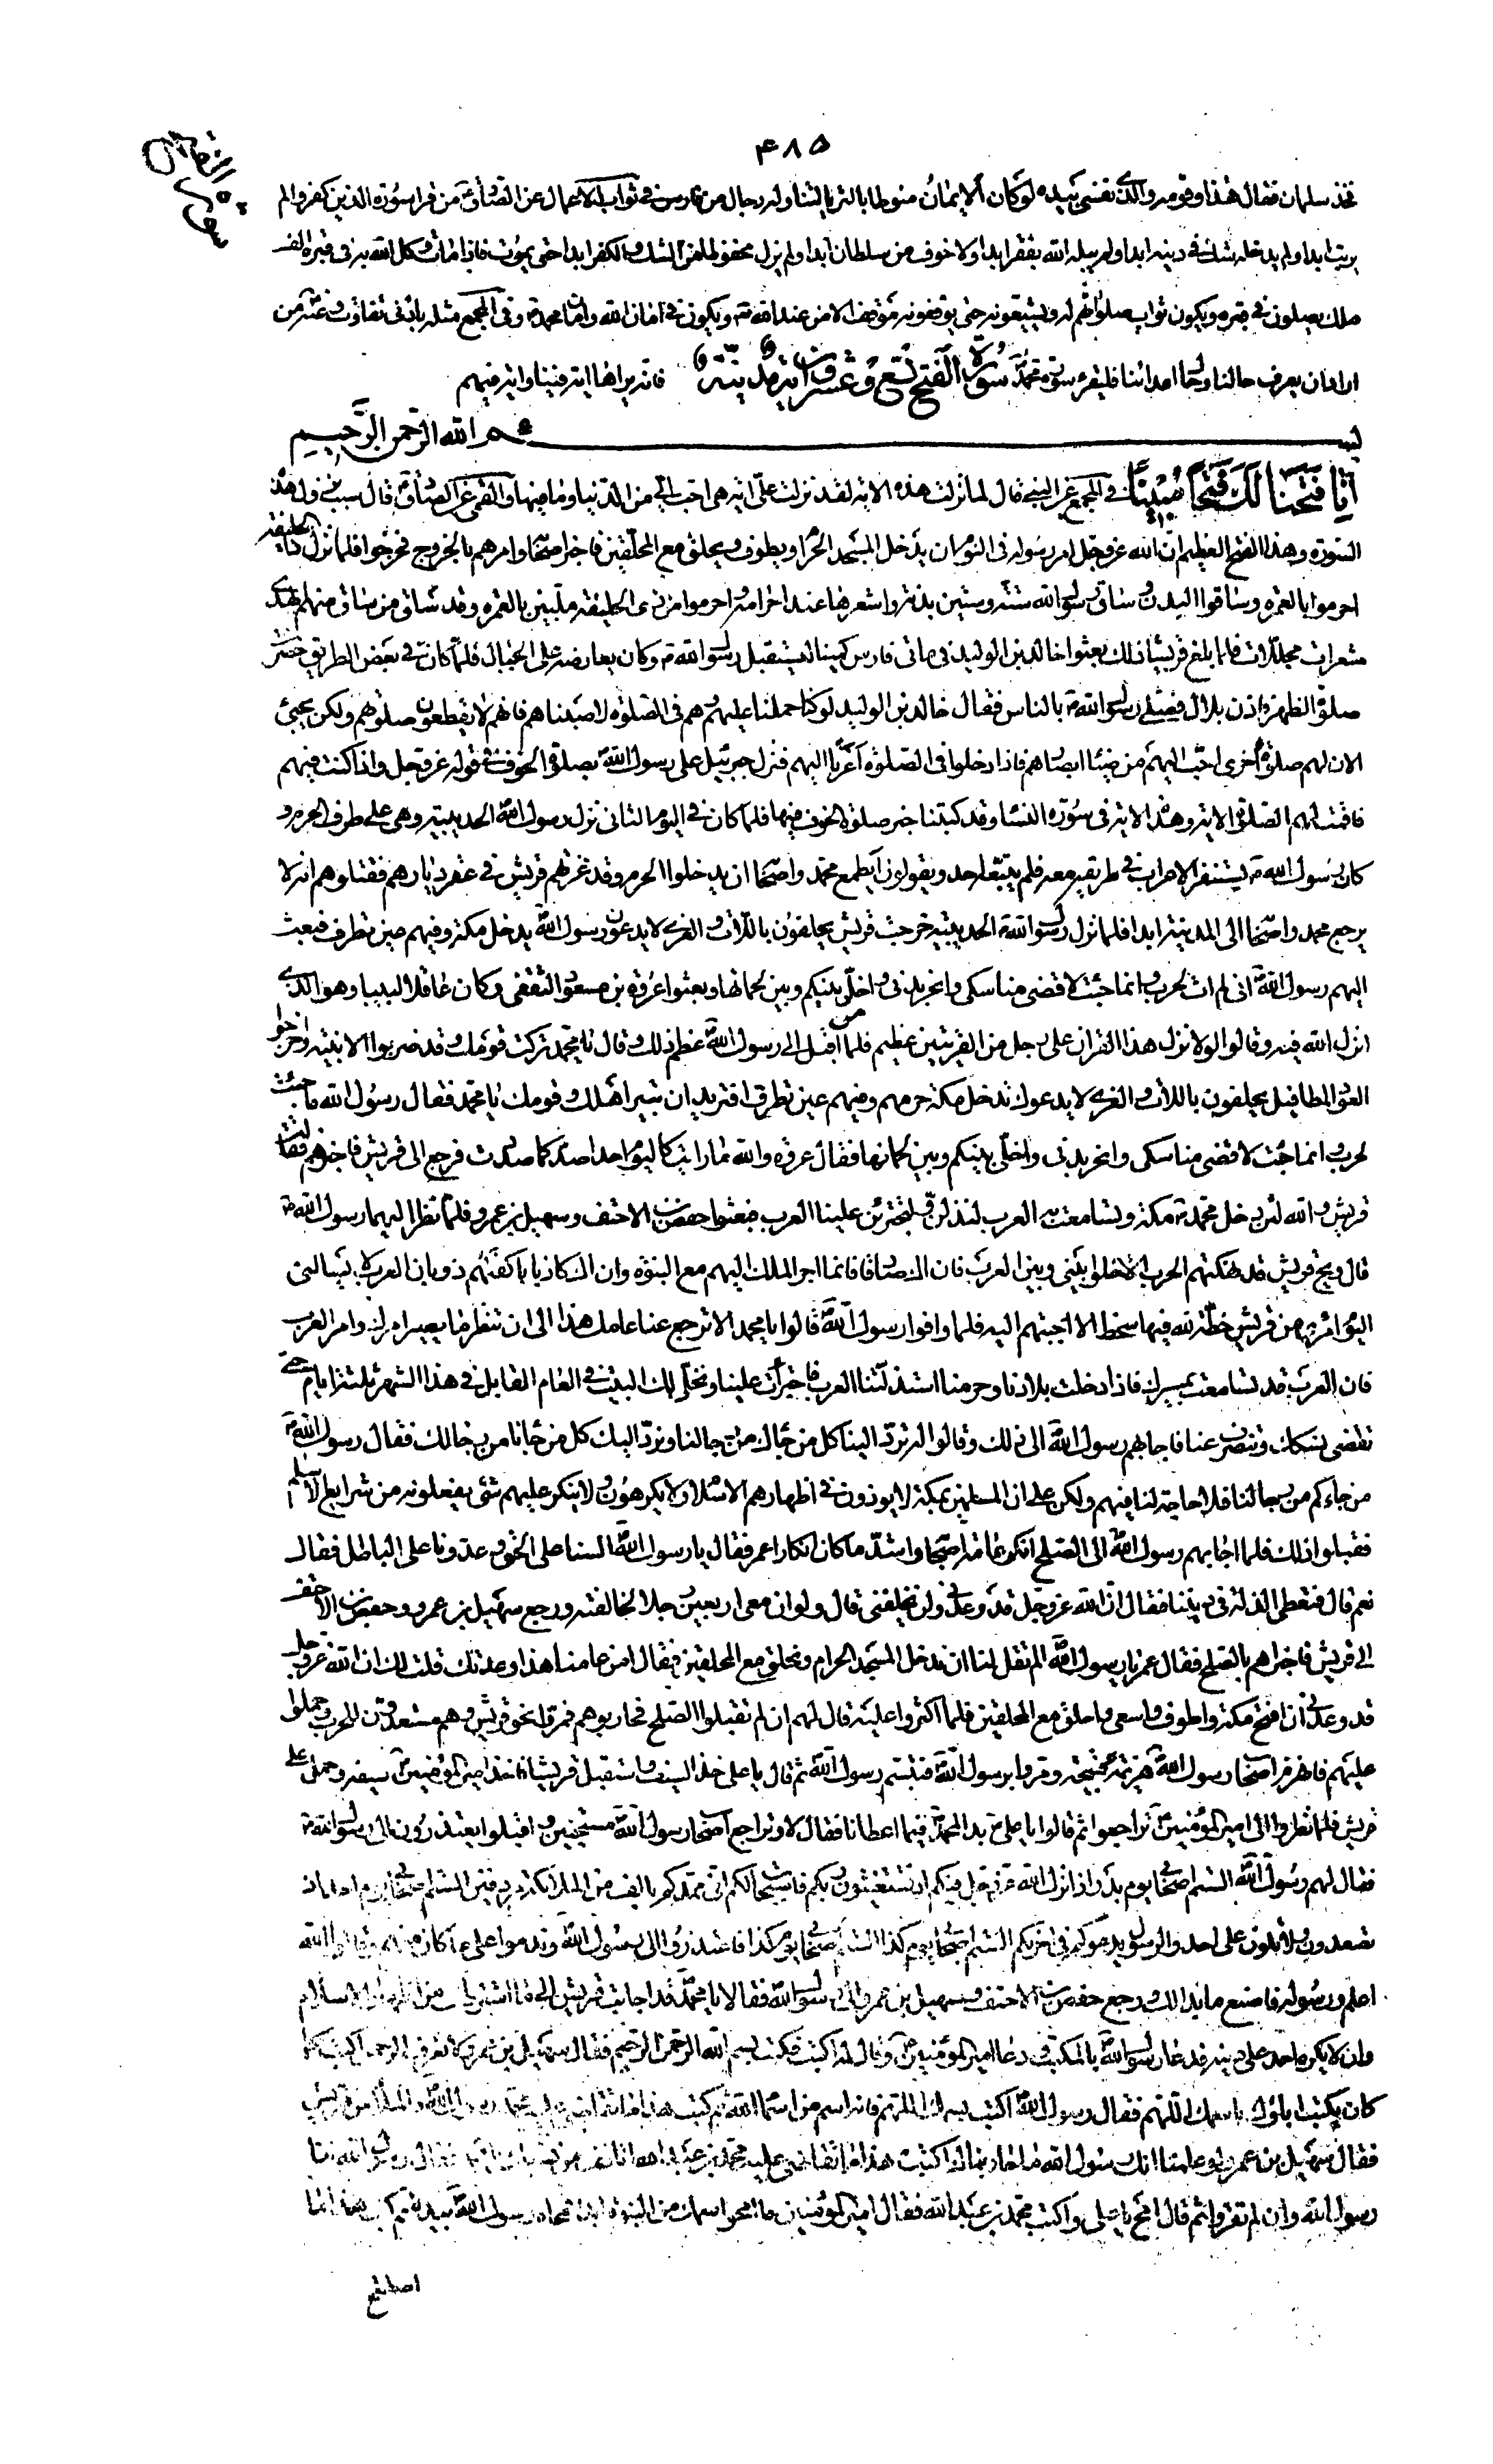 ٤٨٥
فخذ سلمان فقال هذا وقومه والذی نفسی بیده لو کان الایمان منوطا بالثریا لتناوله رجال من فارس فی ثواب الاعمال عن الصادق ع من قرا سورة الذین کفروا لم
یرتب ابدا ولم یدخله شک فی دینه ابدا ولم یبتله الله بفقر ابدا ولا خوف من سلطان ابدا ولم یزل محفوظا من الشک والکفر ابدا حتی یموت فاذا مات وکل الله به فی قبره الف
ملک یصلون فی قبره ویکون ثواب صلواتهم له ویشیعونه حتی یوقفونه موقف الامن عند الله ویکون فی امان الله وامان محمد ص وفی المجمع مثله بادنی تفاوت وعنه ع من
اراد ان یعرف حالنا وحال اعدائنا فلیقرء سورة محمد ص فانه یراها ایة فینا وایة فیهم سورة الفتح تسع وعشرون ایة مدنیة
بسم الله الرحمن الرحیم
انا فتحنا لک فتحا مبینا فی المجمع عن النبی ص قال لما نزلت هذه الایة لقد نزلت علی ایة هی احب الی من الدنیا وما فیها والقمی عن الصادق ع قال سبب نزول هذه
السورة وهذا الفتح العظیم ان الله عز وجل امر رسوله فی النوم ان یدخل المسجد الحرام ویطوف ویحلق مع المحلقین فاخبر اصحابه وامرهم بالخروج فخرجوا فلما نزل ذا الحلیفة
احرموا بالعمرة وساقوا البدن وساق رسول الله ستة وستین بدنة واشعرها عند احرامه واحرموا من ذی الحلیفة ملبین بالعمرة وقد ساق من ساق منهم الهدی
مشعرات مجللات فلما بلغ قریشا ذلک بعثوا خالد بن الولید فی ماتی فارس کمینا لیستقبل رسول الله ص وکان یعارضه علی الجبال فلما کان فی بعض الطریق حضرت
صلوة الظهر واذن بلال فصلی رسول الله ص بالناس فقال خالد بن الولید لو کنا حملنا علیهم وهم فی الصلوة لاصبناهم فانهم لا یقطعون صلوتهم ولکن یجیئ
الان لهم صلوة اخری احب الیهم من ضیاء ابصارهم فاذا دخلوا فی الصلوة اغرنا الیهم فنزل جبرئیل علی رسول الله بصلوة الخوف فی قوله عز وجل واذا کنت فیهم
فاقمت لهم الصلوة الایة وهذه الایة فی سورة النساء وقد کتبنا خبر صلوة الخوف فیها فلما کان فی الیوم الثانی نزل رسول الله الحدیبیة وهی علی طرف الحرم و
کان رسول الله ص یستنفر الاعراب فی طریقه معه فلم یتبعه احد ویقولون ایطمع محمد واصحابه ان یدخلوا الحرم وقد غزتهم قریش فی عقر دیارهم فقتلوهم انه لا
یرجع محمد واصحابه الی المدینة ابدا فلما نزل رسول الله ص الحدیبیة خرجت قریش یحلفون باللات والعزی لا یدعون رسول الله یدخل مکة وفیهم عین تطرف فبعث
الیهم رسول الله انی لم ات لحرب وانما جئت لاقضی مناسکی وانحر بدنی واخلی بینکم وبین لحمانها وبعثوا عروة بن مسعود الثقفی وکان عاقلا لبیبا وهو الذی
انزل الله فیه وقالوا لولا نزل هذا القران علی رجل من القریتین عظیم فلما اقبل الی رسول الله عظم ذلک وقال یا محمد ترکت قومک وقد ضربوا الابنیة واخرجوا
العوذ المطافیل یحلفون باللات والعزی لا یدعوک تدخل مکة حرمهم وفیهم عین تطرف افترید ان تبیر اهلک وقومک یا محمد فقال رسول الله ما جئت
لحرب وانما جئت لاقضی مناسکی وانحر بدنی واخلی بینکم وبین لحمانها فقال عروة والله ما رایت کالیوم احدا صد کما صددت فرجع الی قریش فاخبرهم فقالت
قریش والله لئن دخل محمد ص مکة وتسامعت به العرب لنذلن ولتجترئن علینا العرب فبعثوا حفص بن الاحنف وسهیل بن عمرو فلما نظر الیهما رسول الله ص
قال ویح قریش قد نهکتهم الحرب الا خلوا بینی وبین العرب فان اک صادقا فانما اجر الملک الیهم مع النبوة وان اک کاذبا کفتهم ذوبان العرب لا یسالنی
الیوم امرء من قریش خطة لیس لله فیها سخط الا اجبتهم الیه فلما وافوا رسول الله قالوا یا محمد الا ترجع عنا عامک هذا الی ان ننظر الی ما یصیر امرک وامر العرب
فان العرب قد تسامعت بمسیرک فاذا دخلت بلادنا وحرمنا استذلتنا العرب واجترأت علینا ونخلی لک البیت فی العام القابل فی هذا الشهر ثلثة ایام حتی
تقضی نسکک وتنصرف عنا فاجابهم رسول الله الی ذلک وقالوا له ترد الینا کل من جاءک من رجالنا ونرد الیک کل من جاءنا من رجالک فقال رسول الله ص
من جاءکم من رجالنا فلا حاجة لنا فیهم ولکن علی ان المسلمین بمکة لا یوذون فی اظهارهم الاسلام ولا یکرهون ولا ینکر علیهم شئ یفعلونه من شرایع الاسلام
فقبلوا ذلک فلما اجابهم رسول الله الی الصلح انکر عامة اصحابه واشد ما کان انکارا عمر فقال یا رسول الله السنا علی الحق وعدونا علی الباطل فقال
نعم قال فنعطی الذلة فی دیننا فقال ان الله عز وجل قد وعدنی ولن یخلفنی قال ولو ان معی اربعین رجلا لخالفته ورجع سهیل بن عمرو وحفص بن الاحنف
الی قریش فاخبراهم بالصلح فقال عمر یا رسول الله الم تقل لنا ان ندخل المسجد الحرام ونحلق مع المحلقین فقال امن عامنا هذا وعدتک قلت لک ان الله عز وجل
قد وعدنی ان افتح مکة واطوف واسعی واحلق مع المحلقین فلما اکثروا علیه قال لهم ان لم تقبلوا الصلح فحاربوهم فمروا نحو قریش وهم مستعدون للحرب وحملوا
علیهم فانهزم اصحاب رسول الله هزیمة قبیحة ومروا برسول الله فتبسم رسول الله ثم قال یا علی خذ السیف واستقبل قریشا فاخذ امیر المؤمنین سیفه وحمل علی
قریش فلما نظروا الی امیر المؤمنین تراجعوا ثم قالوا یا علی بدا لمحمد فیما اعطانا فقال لا وتراجع اصحاب رسول الله مستحیین واقبلوا یعتذرون الی رسول الله ص
فقال لهم رسول الله الستم اصحابی یوم بدر اذ انزل الله عز وجل فیکم اذ تستغیثون ربکم فاستجاب لکم انی ممدکم بالف من الملائکة مردفین الستم اصحابی یوم احد اذ
تصعدون ولا تلون علی احد والرسول یدعوکم فی اخریکم الستم اصحابی یوم کذا الستم اصحابی یوم کذا فاعتذروا الی رسول الله وندموا علی ما کان منهم وقالوا الله
اعلم ورسوله فاصنع ما بدا لک ورجع حفص بن الاحنف وسهیل بن عمرو الی رسول الله فقالا یا محمد قد اجابت قریش الی ما اشترطت من اظهار الاسلام
وان لا یکره احد علی دینه فدعا رسول الله بالمکتب ودعا امیر المؤمنین وقال له اکتب فکتب بسم الله الرحمن الرحیم فقال سهیل بن عمرو لا نعرف الرحمن اکتب کما
کان یکتب اباؤک باسمک اللهم فقال رسول الله اکتب باسمک اللهم فانه اسم من اسماء الله ثم کتب هذا ما تقاضی علیه محمد رسول الله والملأ من قریش
فقال سهیل بن عمرو لو علمنا انک رسول الله ما حاربناک اکتب هذا ما تقاضی علیه محمد بن عبد الله اتانف من نسبک یا محمد فقال رسول الله انا
رسول الله وان لم تقروا ثم قال امح یا علی واکتب محمد بن عبد الله فقال امیر المؤمنین ما امحو اسمک من النبوة ابدا فمحاه رسول الله بیده ثم کتب هذا ما
اصطلح